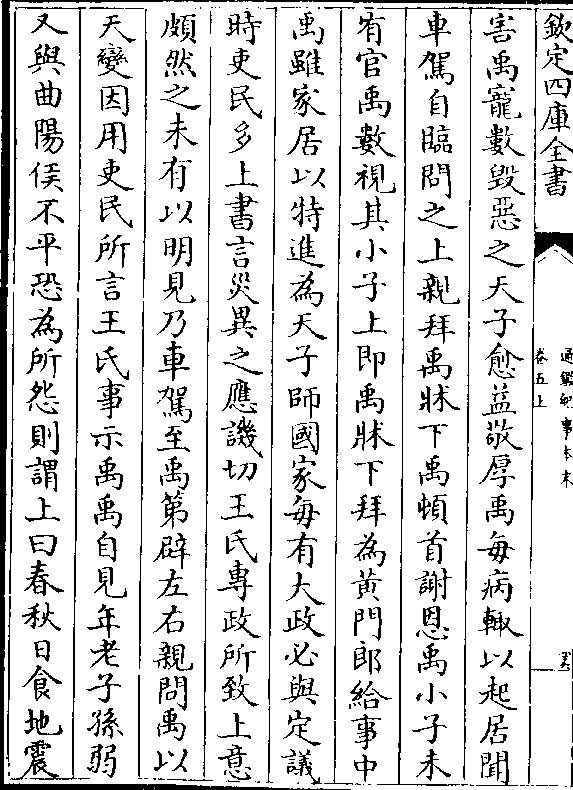 欽定四庫全書
通鑑紀事本末
卷五上
害禹寵數毀惡之天子愈益敬厚禹每病輙以起居聞
車駕自臨問之上親拜禹牀下禹頓首謝恩禹小子未
有官禹數視其小子上即禹牀下拜為黃門郎給事中
禹雖家居以特進為天子師國家每有大政必與定議
時吏民多上書言災異之應譏切王氏專政所致上意
頗然之未有以明見乃車駕至禹第辟左右親問禹以
天變因用吏民所言王氏事示禹禹自見年老子孫弱
又與曲陽侯不平恐為所怨則謂上曰春秋日食地震